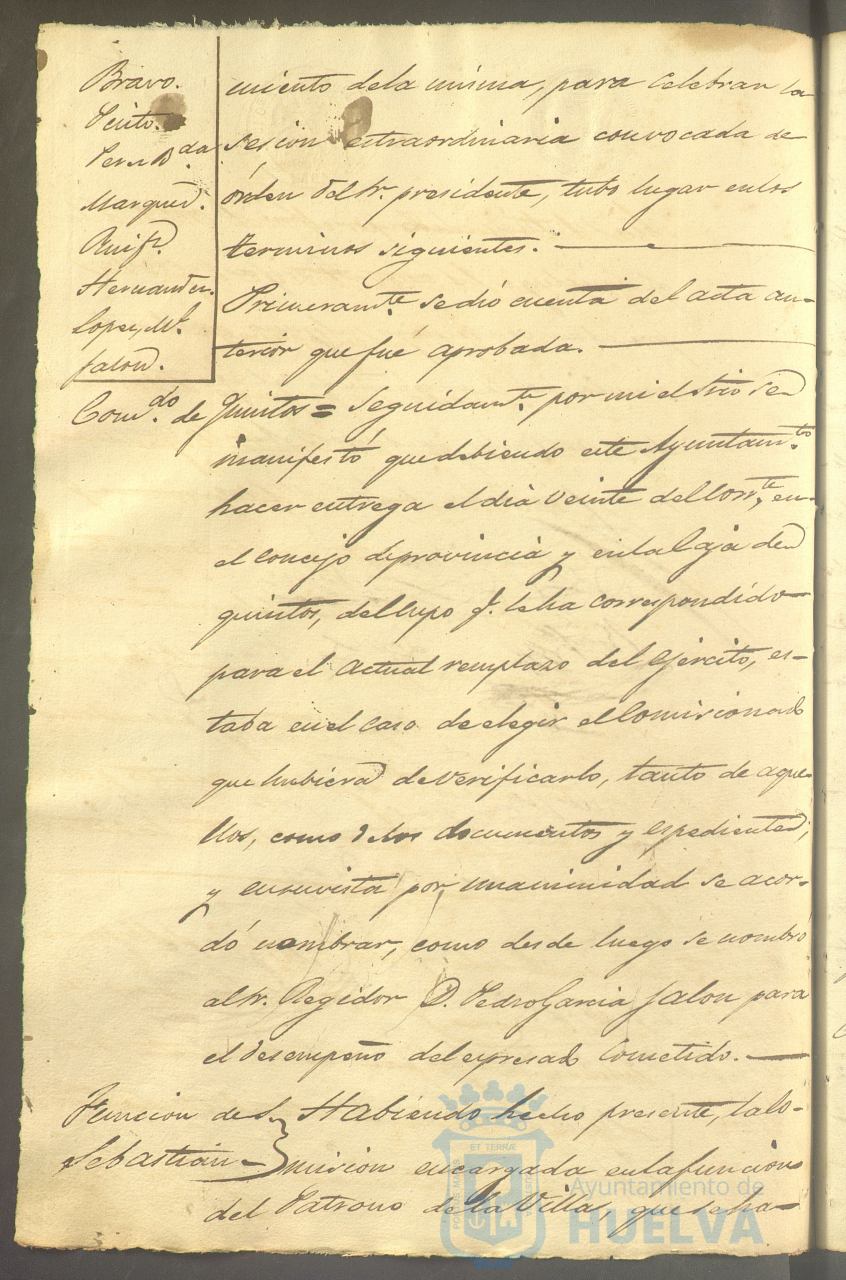 Bravo.
Marquez.
Ruiz
Hernandez.
Lopez, M.l
Jalon.
miento dela misma, para celebrar la
sesion estraordinaria convocada de
órden del Sr. presidente, tubo lugar enlos
terminos siguientes.
Primeramte. sedió cuenta del acta an-
terior que fué aprobada.
Comdo. de Quintos = Seguidamte. por mi el Srio se
manifestó que debiendo este Ayuntamto.
hacer entrega el dia veinte del corrte, en
el concejo de provincia y en la Caja de
quintos, del cupo q. le ha correspondido
para el actual remplazo del ejército, es-
taba en el caso de elegir el Comisionado
que hubiera de verificarlo, tanto de aque-
llos, como de los documentos y espedientes,
y en su vista por unanimidad se acor-
dó nombrar, como desde luego se nombró
al Sr. Regidor D. Pedro Garcia Jalon para
el desempeño del expresado Cometido.
Funcion de S. Sebastian
Habiendo hecho presente, la Co-
mision encargada en la funcion
del Patrono de la Villa, que se ha-
ET TERRÆ
PORTUS MARIS
CUSTODIA
Ayuntamiento de
HUELVA